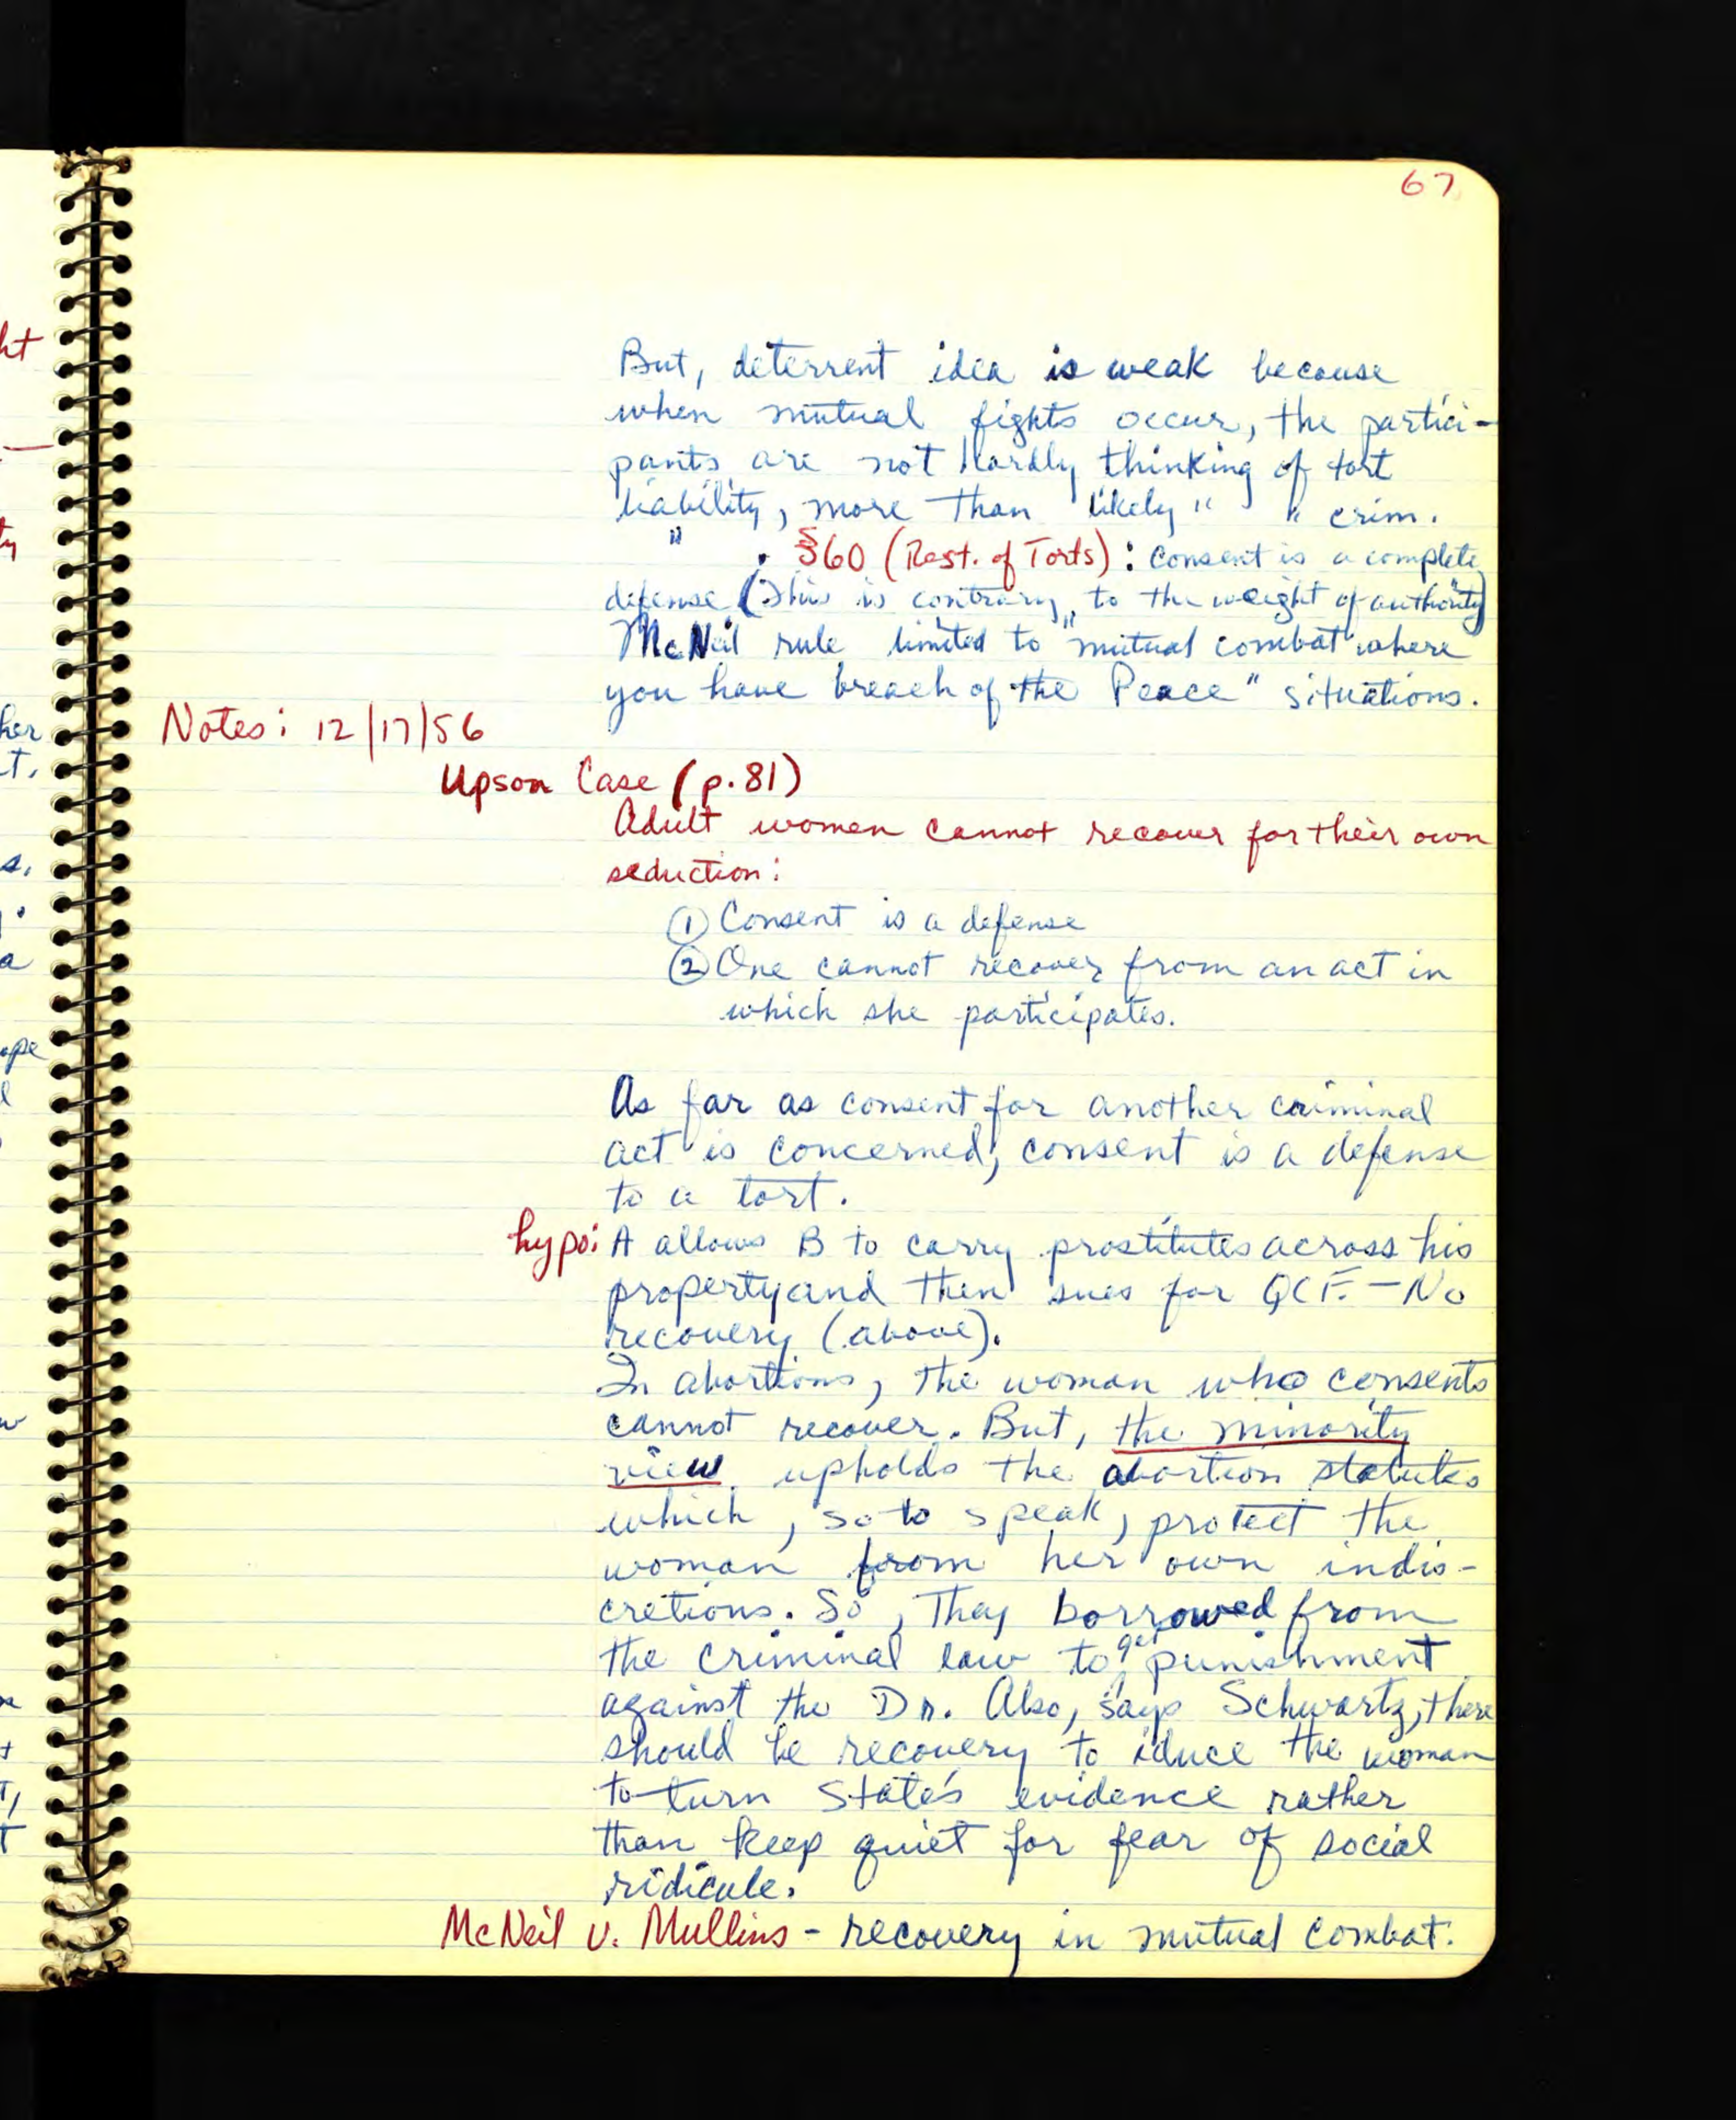 67
But, deterrent idea is weak because
when mutual fights occur, the partici-
pants are not hardly thinking of tort
liability, more than likely " " crim.
" . §60 (Rest. of Torts): Consent is a complete
defense (This is contrary to the "weight of authority")
McNeil rule limited to "mutual combat where
you have breach of the Peace" situations.
Notes: 12/17/56
Upson Case (p.81)
Adult women cannot recover for their own
seduction:
① Consent is a defense
② One cannot recover from an act in
which she participates.
As far as consent for another criminal
act is concerned, consent is a defense
to a tort.
hypo: A allows B to carry prostitutes across his
property and then sues for QCF. - No
recovery (above).
In abortions, the woman who consents
cannot recover. But, the minority
view upholds the abortion statutes
which, so to speak, protect the
woman from her own indis-
cretions. So, they borrowed from
the criminal law to get punishment
against the Dr. Also, says Schwartz, there
should be recovery to iduce the woman
to turn State's evidence rather
than keep quiet for fear of social
ridicule.
McNeil v. Mullins - recovery in mutual combat.
ht
ty
her
t.
s.
a
ope
l
w
t